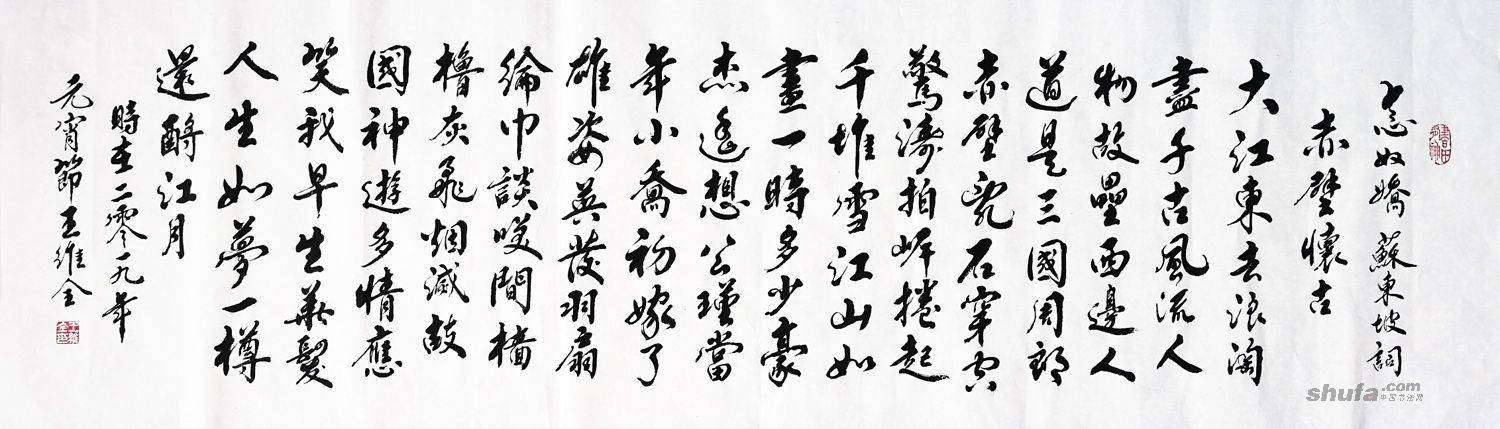 念奴嬌 蘇東坡詞
赤壁懷古
大江東去浪淘
盡千古風流人
物故壘西邊人
道是三國周郎
赤壁亂石穿空
驚濤拍岸捲起
千堆雪江山如
畫一時多少豪
杰遙想公瑾當
年小喬初嫁了
雄姿英發羽扇
綸巾談咲間檣
櫓灰飛烟滅故
國神遊多情應
笑我早生華髮
人生如夢一樽
還酹江月
時在二零一九年
元宵節王維全
shufa.com
中国书法网